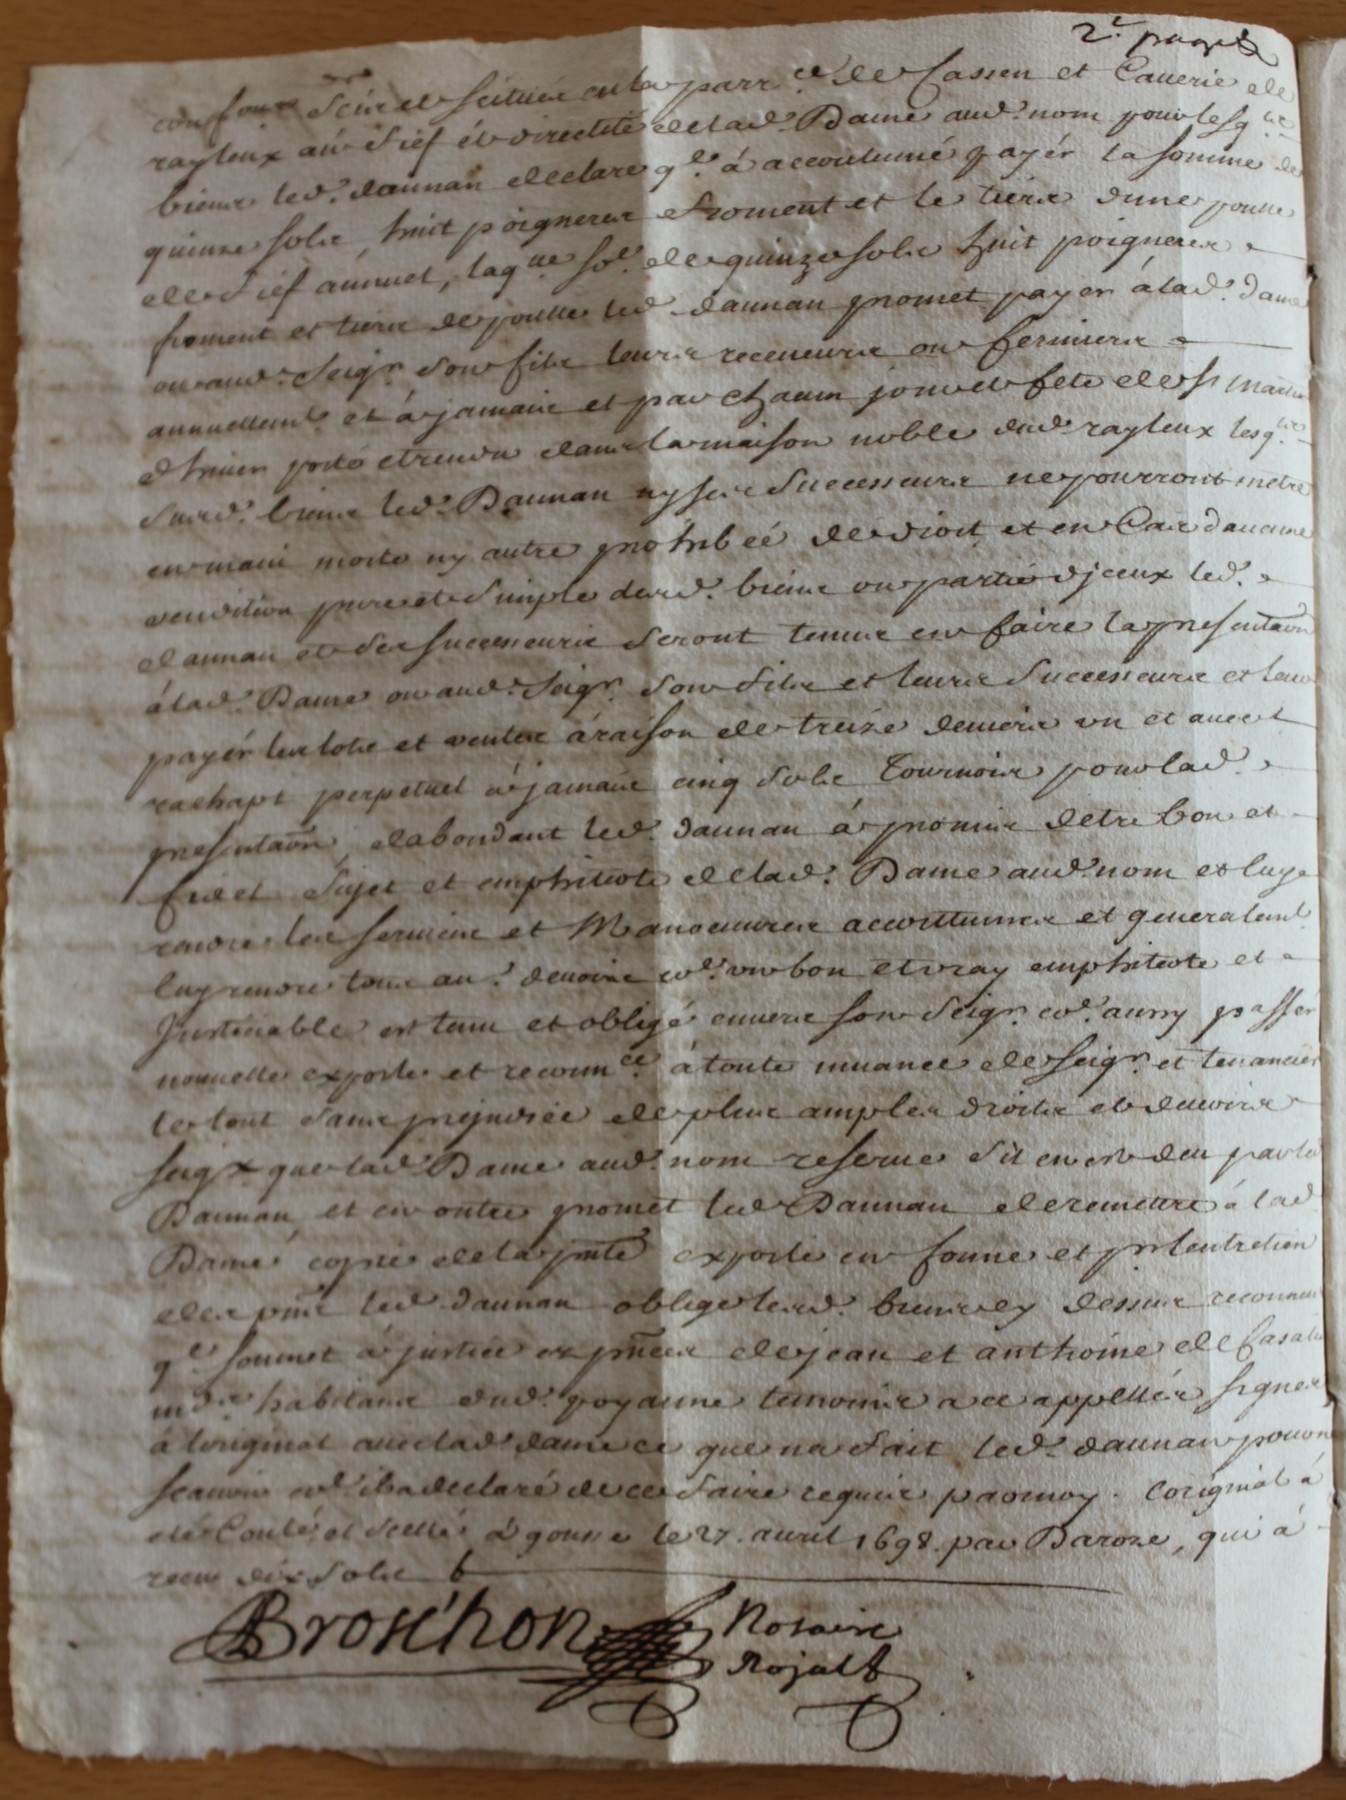 2.e page
scituée en la parr.ce de Cassen et Cauerie de
rayleux au fief et directité de lad. Dame aud. nom pour lesq.les
biens led. daunan declare q.l á accoutumé payér la somme de
quinze sols huit poigneres froment et le tiers dune poulle
de fief annuel, laq.lle so.e de quinze sols huit poigneres
froment et tiers de poulle led. daunan promet payer álad. dame
ou aud. Seig.r son fils leurs receueurs ou fermiers
annuellem.t et á jamais et par chacun jour et fete de s.t Martin
dhiuer porté et rendu dans la maison noble dud. rayleux lesq.ls
susd. biens led. Daunan ny ses Successeurs ne pourront métre
en main morte ny autre prohibeé de droit et en Cas daucune
vendition pure et Simple desd. biens ou partie djceux led.
daunan et ses successeurs seront tenus en faire la presentaõn
álad. Dame ou aud. Seig.r son fils et leurs Successeurs et leur
payér les lots et ventes áraison de treize deniers vn et auec
rachapt perpetuel á jamais cinq Sols Tournois pour lad.
presentaõn, dabondant led. daunan á promis detre bon et
fidel Sujet et emphiteote de lad. Dame aud. nom et luy
rendre les seruices et Manoeuures accoutumés et generalem.t
luy rendre tous au.s deuoirs co.e vn bon et vray emphiteote et
Justiciable est tenu et obligé enuers son Seig.r co.e aussy passér
nouuelle exporle et reconn.ce á toute muance de Seig.r et tenancier
le tout sans prejudice de plus amples droits et deuoirs
seig.x que lad. Dame aud. nom reserue Sil en est deu par led.
Daunan, et en outre promet led. Daunan de remettre á lad.
Dame, copie de la pñte exporle en forme et pr lentretien
des pñs led. daunan oblige lesd. biens cy dessus reconnus
q.l soumet á justice es pñces de jean et anthoine de Casalis
m.ds habitans dud. poyanne temoins a ce appellés signes
á loriginal auec lad. dame ce que na fait led. daunan pour ne
scauoir co.e il a declaré de ce faire requis par moy. Loriginal á
eté Conlé et scellé á gousse le 27. auril 1698. par Daroze, qui á
receu dix Sols
Brosthon Notaire
Royal